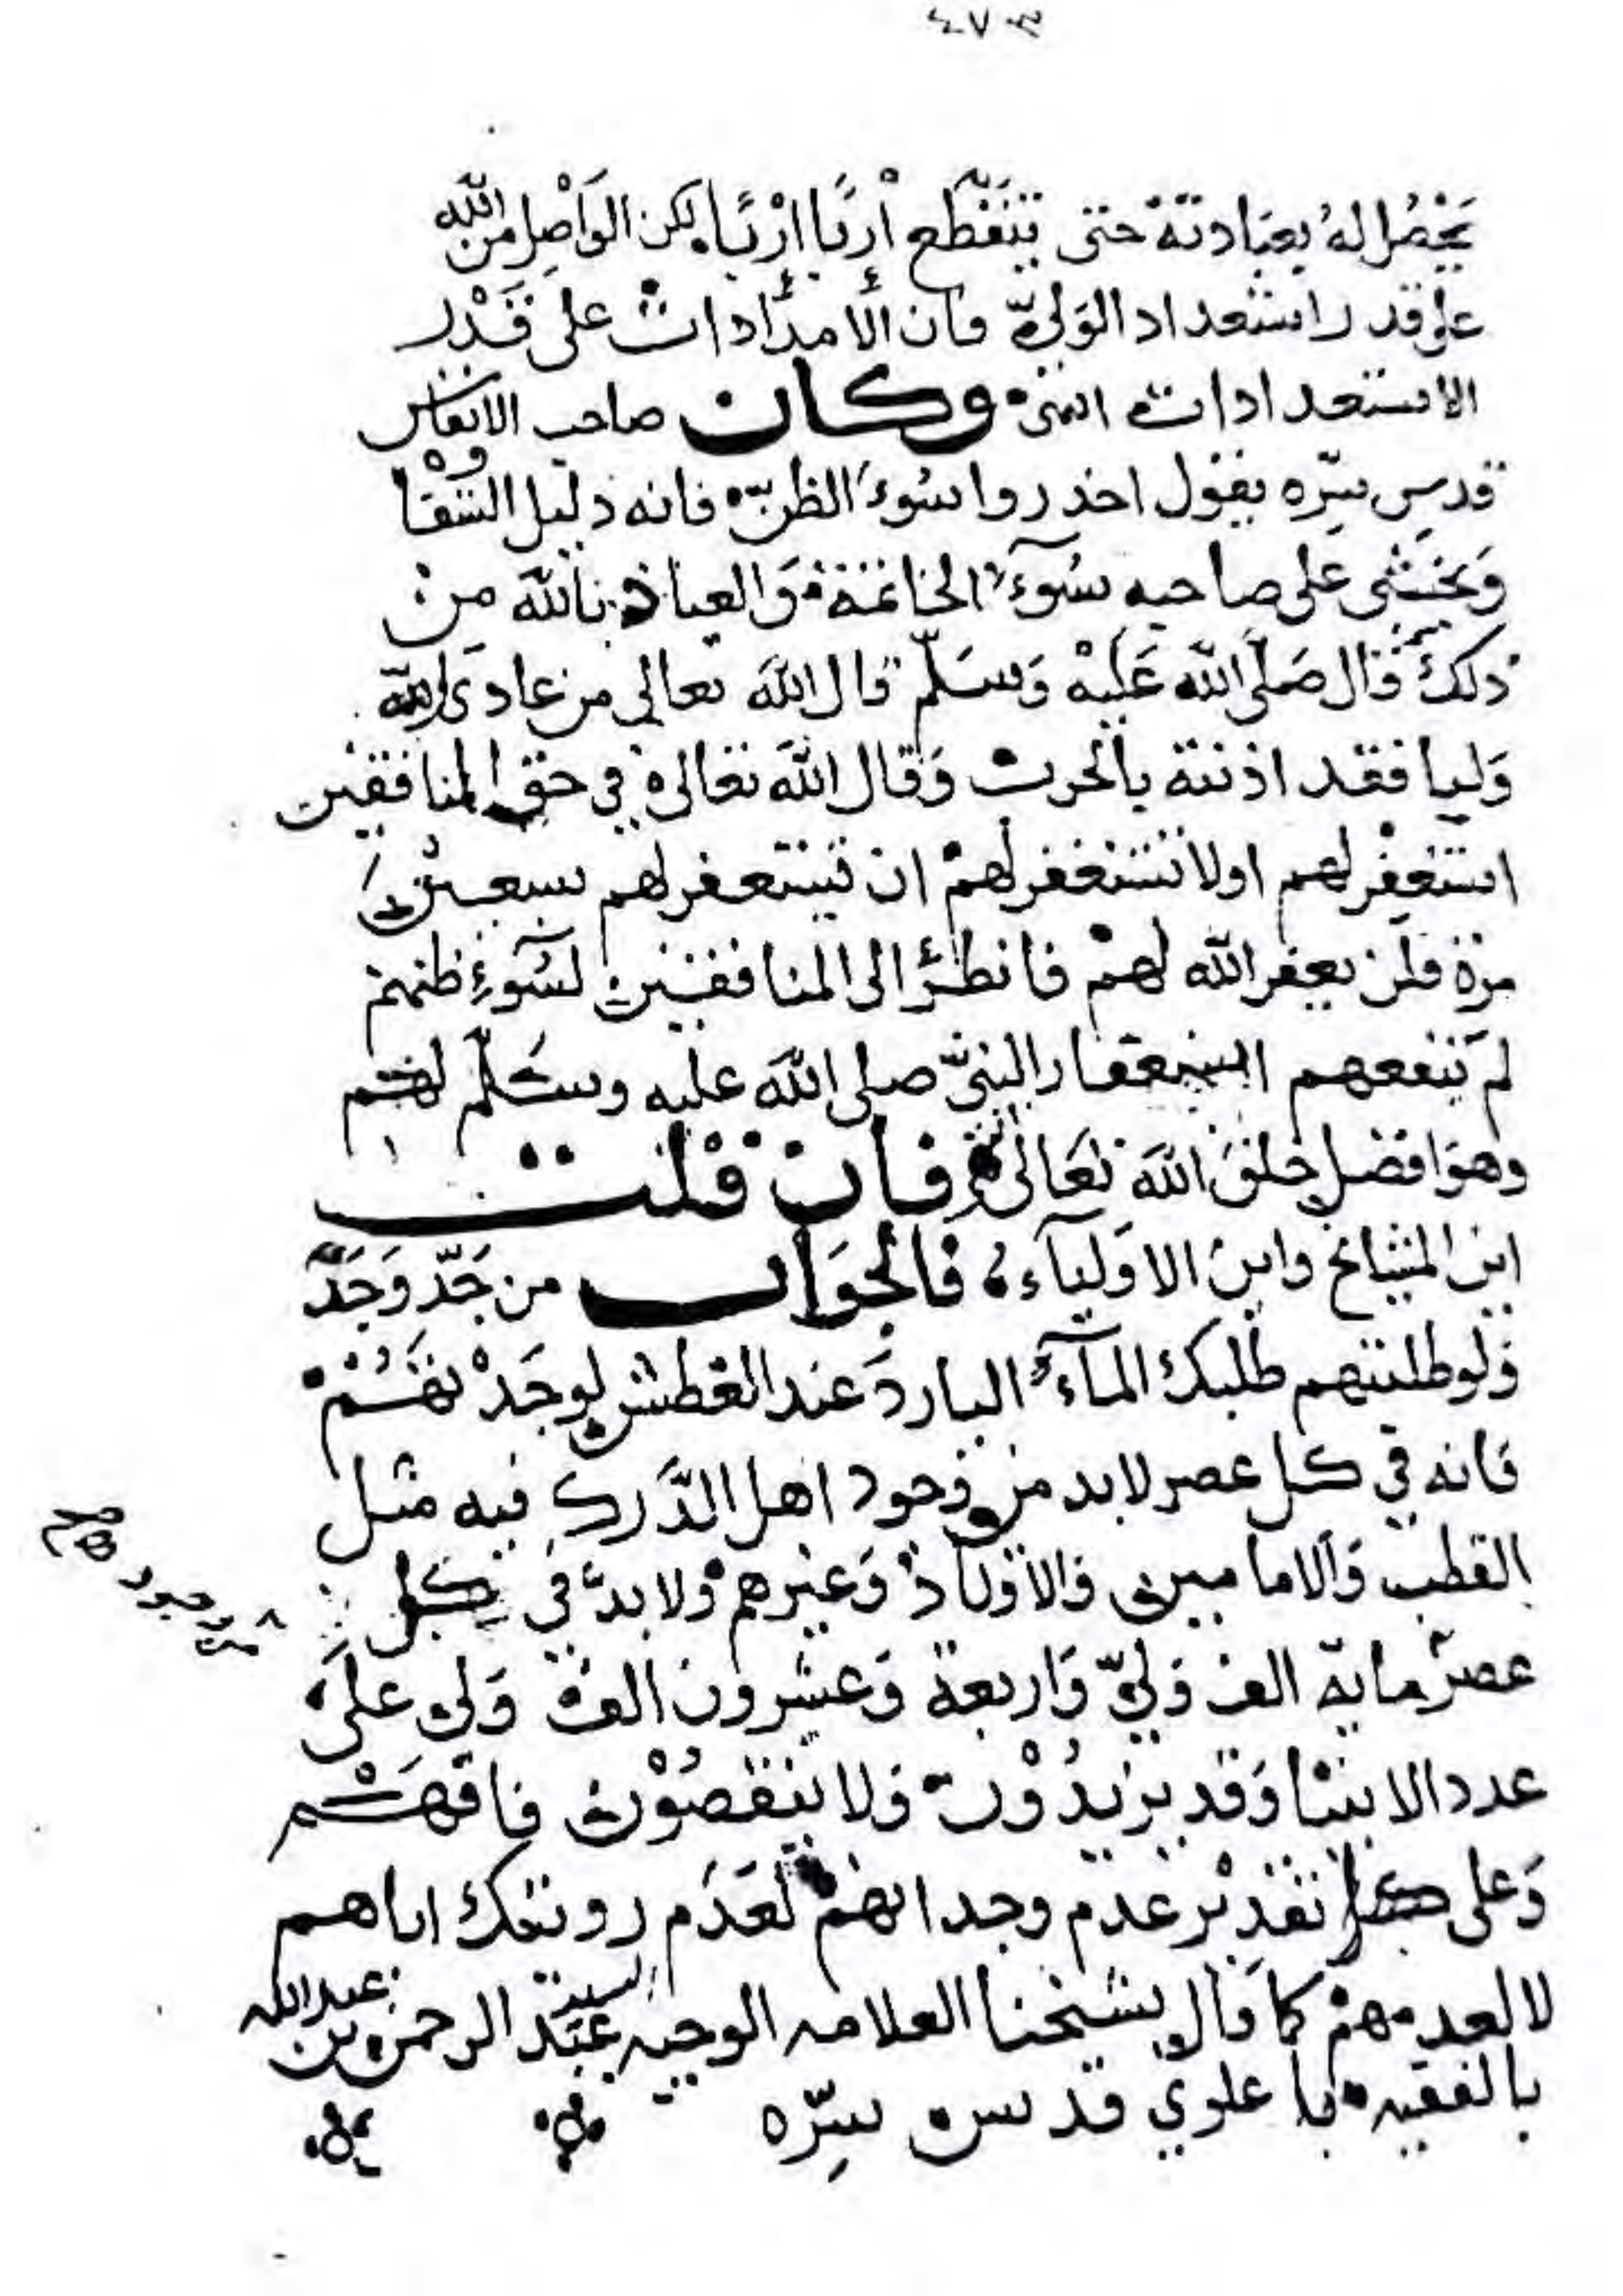 ٤٧٣
يحصل له بعبادته حتى يتقطع أربًا اربًا لكن الواصل من الله
على قدر استعداد الولي فان الامدادات على قدر
الاستعدادات انتهى وكان صاحب الانفاس
قدس سره يقول احذروا سوء الظن فانه دليل الشقا
ويخشى على صاحبه سوء الخاتمة والعياذ بالله من
ذلك قال صلى الله عليه وسلم قال الله تعالى من عادى لي
وليا فقد اذنته بالحرب وقال الله تعالى في حق المنافقين
استغفر لهم اولا تستغفر لهم ان تستغفر لهم سبعين
مرة فلن يغفر الله لهم فانظر الى المنافقين لسوء ظنهم
لم تنفعهم استغفار النبي صلى الله عليه وسلم لهم
وهو افضل خلق الله تعالى فان قلت
اين المشايخ واين الاولياء فالجواب من جد وجد
ولو طلبتهم طلبك الماء البارد عند العطش لوجدتهم
فانه في كل عصر لابد من وجود اهل الدرك فيه مثل
القطب والامامين والاوتاد وغيرهم ولابد في كل
من وجود
عصر ماية الف ولي واربعة وعشرون الف ولي على
عدد الانبيا وقد يزيدون ولا ينقصون فافهم
وعلى كل تقدير عدم وجدانهم لعدم رويتك اياهم
لا لعدمهم كما قال شيخنا العلامه الوجيه السيد عبد الرحمن بن عبدالله
بالفقيه با علوي قدس سره